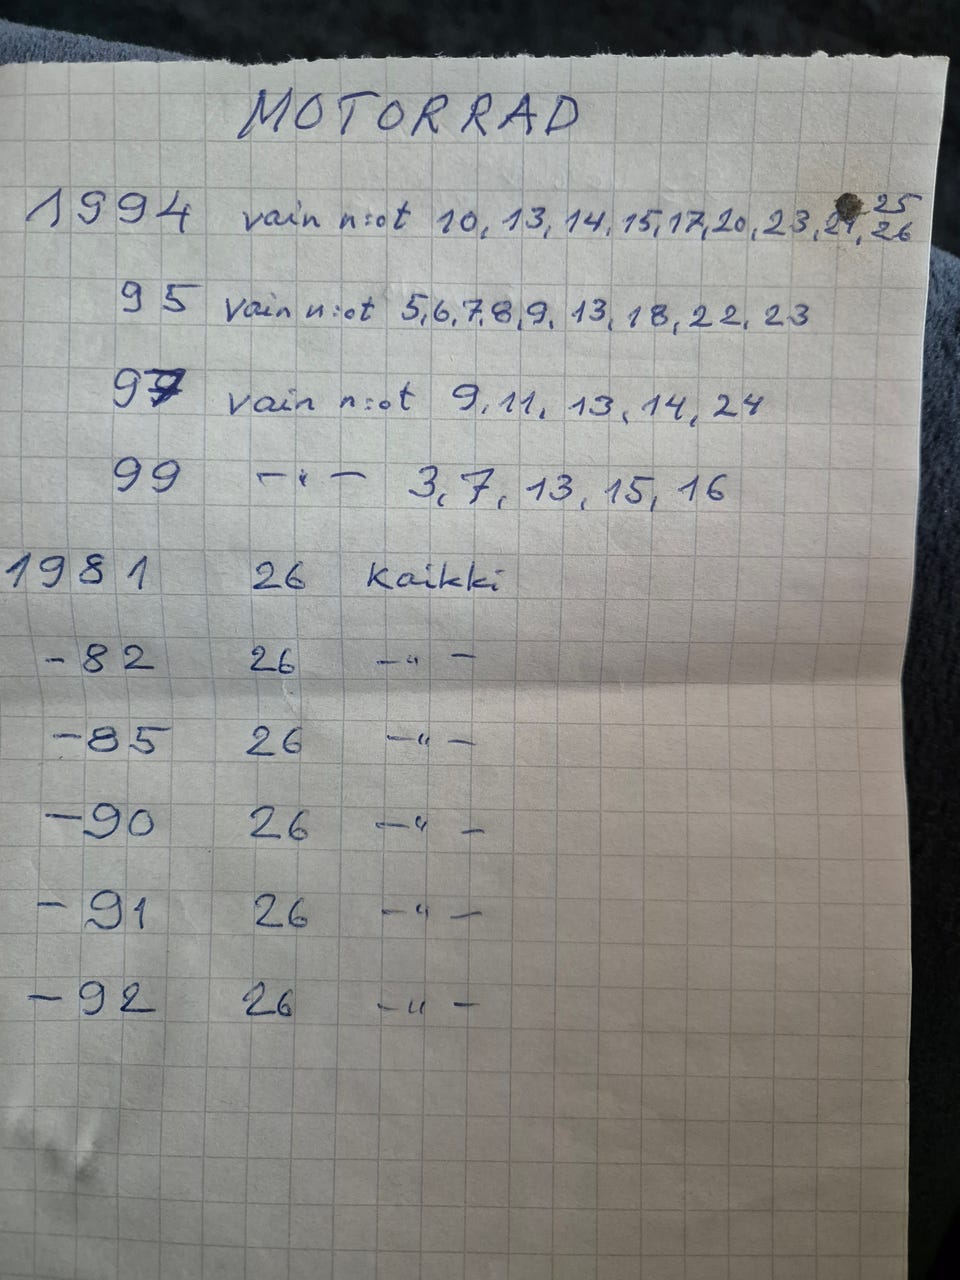 MOTORRAD
1994 vain n:ot 10, 13, 14, 15, 17, 20, 23, 24, 25
26
95 vain n:ot 5, 6, 7, 8, 9, 13, 18, 22, 23
97 vain n:ot 9, 11, 13, 14, 24
99 -"- 3, 7, 13, 15, 16
1981 26 Kaikki
-82 26 -"-
-85 26 -"-
-90 26 -"-
-91 26 -"-
-92 26 -"-